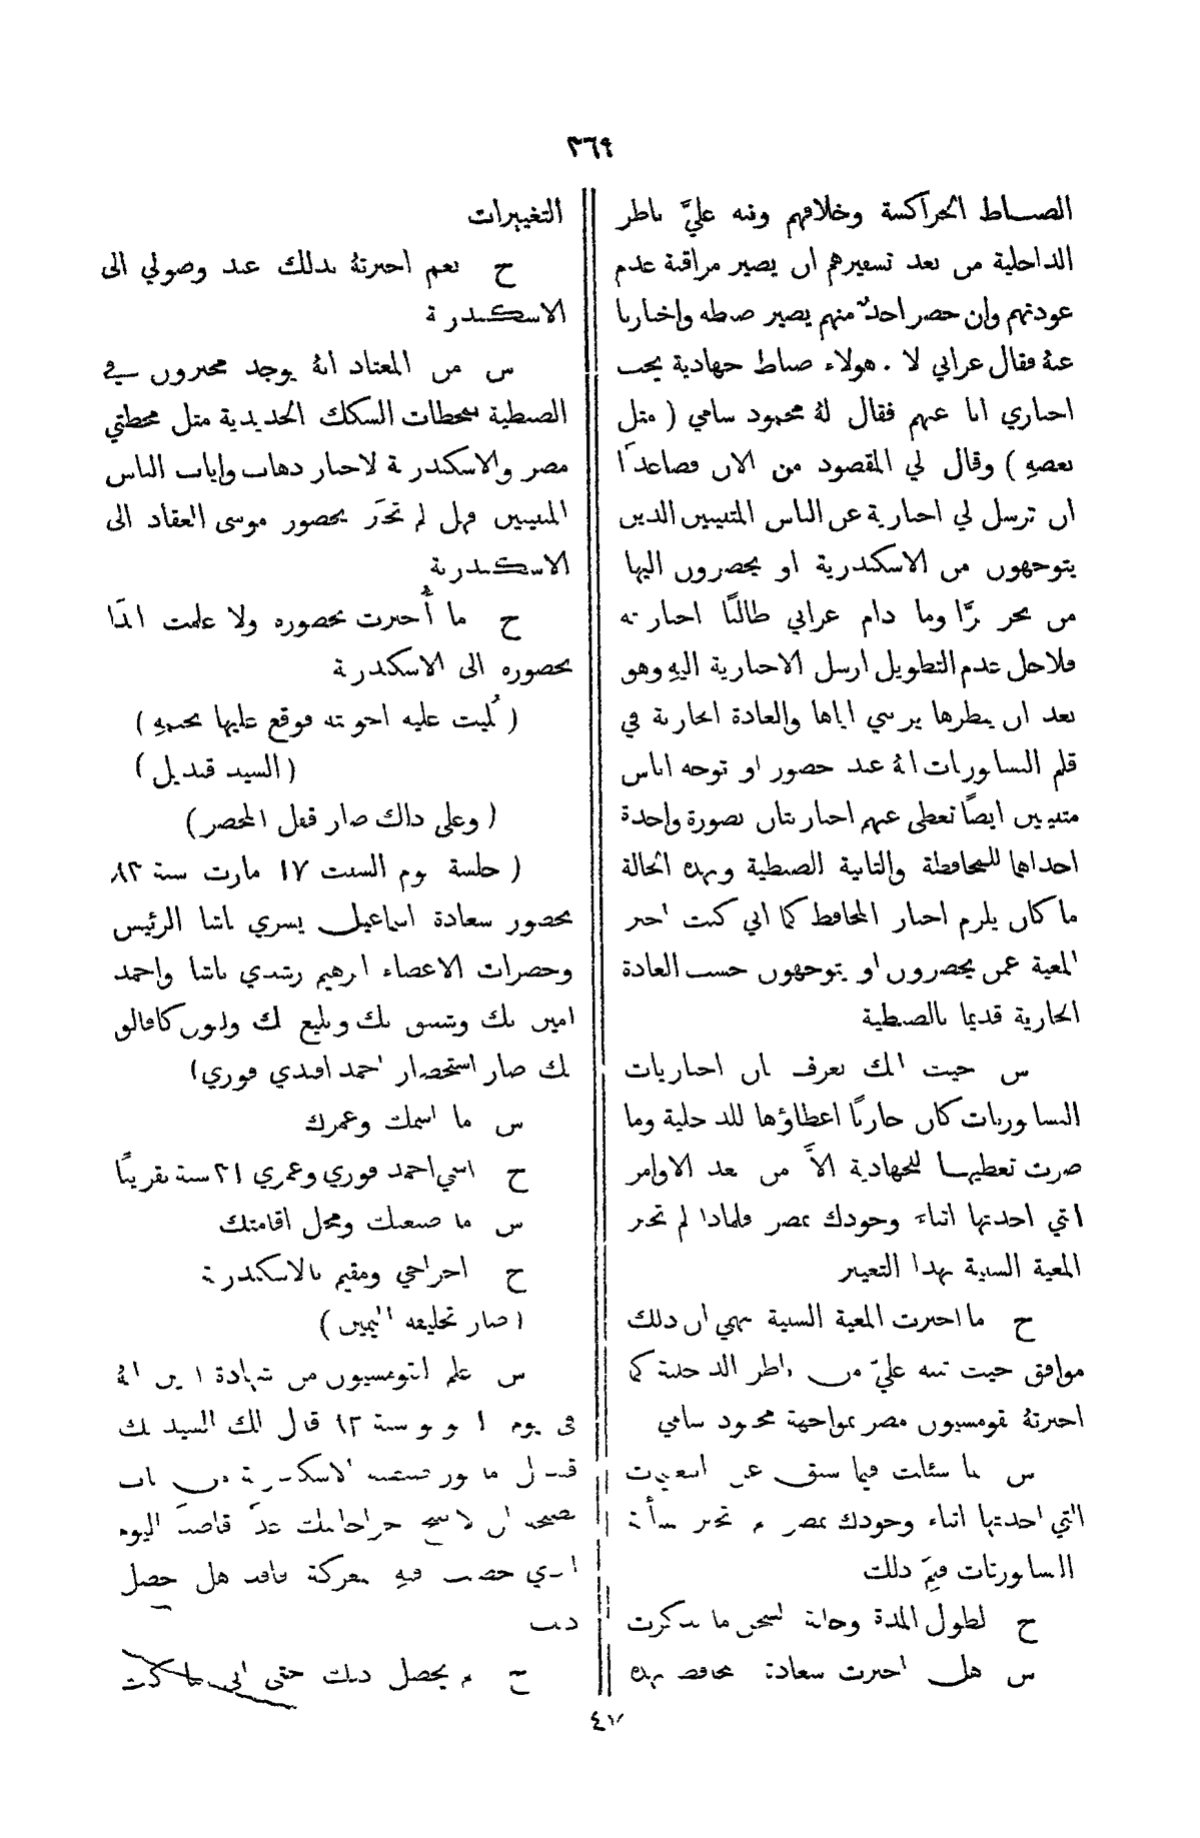 ٣٦٩
الضباط الجراكسة وخلافهم ونبه عليَّ ناظر
الداخلية من بعد تسفيرهم ان يصير مراقبة عدم
عودتهم وان حضر احدٌ منهم يصير ضبطه واخبارنا
عنهُ فقال عرابي لا . هولاء ضباط جهادية يجب
اخباري انا عنهم فقال لهُ محمود سامي ( مثل
بعضهِ ) وقال لي المقصود من الان فصاعدًا
ان ترسل لي اخبارية عن الناس المتعينين الذين
يتوجهون من الاسكندرية او يحضرون اليها
من بحر برًّا وما دام عرابي طالبًا اخبارته
فلاجل عدم التطويل ارسل الاخبارية اليهِ وهو
بعد ان ينظرها يريني اياها والعادة الجارية في
قلم البسابورتات انهُ عند حضور او توجه اناس
متعينين ايضًا تعطى عنهم اخباريتان بصورة واحدة
احداها للمحافظة والثانية الضبطية وبهذه الحالة
ما كان يلزم اخبار المحافظ كما اني كنت اخبر
المعية عمن يحضرون او يتوجهون حسب العادة
الجارية قديما بالضبطية
س حيث انك تعرف بان اخباريات
البسابورتات كان جاريًا اعطاؤها للداخلية وما
صرت تعطيها للجهادية الاَّ من بعد الاوامر
التي اخذتها اثناء وجودك بمصر فلماذا لم تخبر
المعية السنية بهذا التغيير
ج ما اخبرت المعية السنية بفهمي ان ذلك
موافق حيث تنبه عليّ من ناظر الداخلية كما
اخبرتهُ بقومسيون مصر بمواجهة محمود سامي
س لما سئلت فيما سبق عن التغييرات
التي اخذتها اثناء وجودك بمصر لم تخبر بمسألة
البسابورتات فلِمَ ذلك
ج لطول المدة وحالة السجن ما تذكرت
س هل اخبرت سعادة محافظ بهذه
التغييرات
ج نعم اخبرتهُ بذلك عند وصولي الى
الاسكندرية
س من المعتاد انهُ يوجد مخبرون في
الضبطية بمحطات السكك الحديدية مثل محطتي
مصر والاسكندرية لاخبار ذهاب واياب الناس
المتعينين فهل لم تخبَر بحضور موسى العقاد الى
الاسكندرية
ج ما أُخبرت بحضوره ولا علمت ابدًا
بحضوره الى الاسكندرية
( تُليت عليه اجوبته فوقع عليها بختمهِ )
( السيد قنديل )
( وعلى ذلك صار قفل المحضر )
( جلسة يوم السبت ١٧ مارت سنة ٨٣
بحضور سعادة اسماعيل يسري باشا الرئيس
وحضرات الاعضاء ابرهيم رشدي باشا واحمد
امين بك وشفيق بك وبليغ بك وليون كافالو
بك صار استحضار احمد افندي فوري )
س ما اسمك وعمرك
ج اسمي احمد فوري وعمري ٣١ سنة تقريبًا
س ما صنعتك ومحل اقامتك
ج اجزاجي ومقيم بالاسكندرية
( صار تحليفه اليمين )
س علم القومسيون من شهادة انهُ
في يوم ١١ يونيو سنة ٨٢ قال لك السيد بك
قنديل مامور ضبطية الاسكندرية من باب
النصيحة ان لا تفتح اجزاخانتك غدًا قاصدًا اليوم
الذي حصلت فيهِ معركة فافد هل حصل
ذلك
ج لم يحصل ذلك حتى اني ما كنت
٤٧